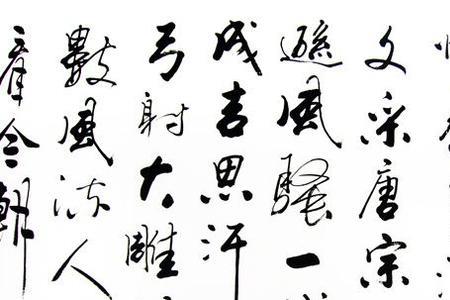 文采唐宗
遜風騷一
成吉思汗
弓射大雕
數風流人
看今朝